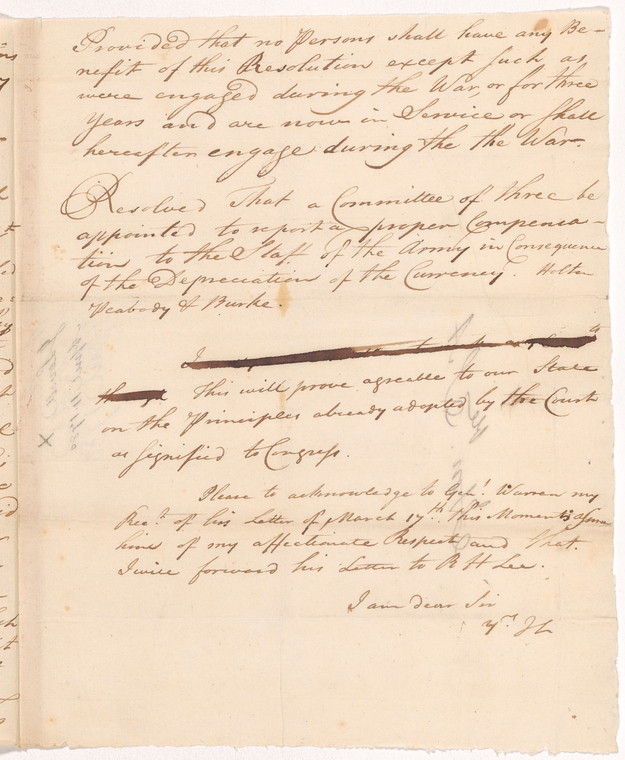 Provided that no Persons shall have any Be-
nefit of this Resolution except such as
were engaged during the War, or for three
years and are now in Service or shall
hereafter engage during the the War.
Resolved That a Committee of three be
appointed to report a proper Compensa-
tion to the Staff of the Army in Consequence
of the Depreciation of the Currency. Holten
Peabody & Burke.
This will prove agreable to our State
on the Principles already adopted by the Court
as signified to Congress.
Please to acknowledge to Genl. Warren my
Recp. of his Letter of March 17th. this Moment
him of my affectionate Respects and that
I will forward his Letter to R H Lee.
I am dear Sir
yrs JL